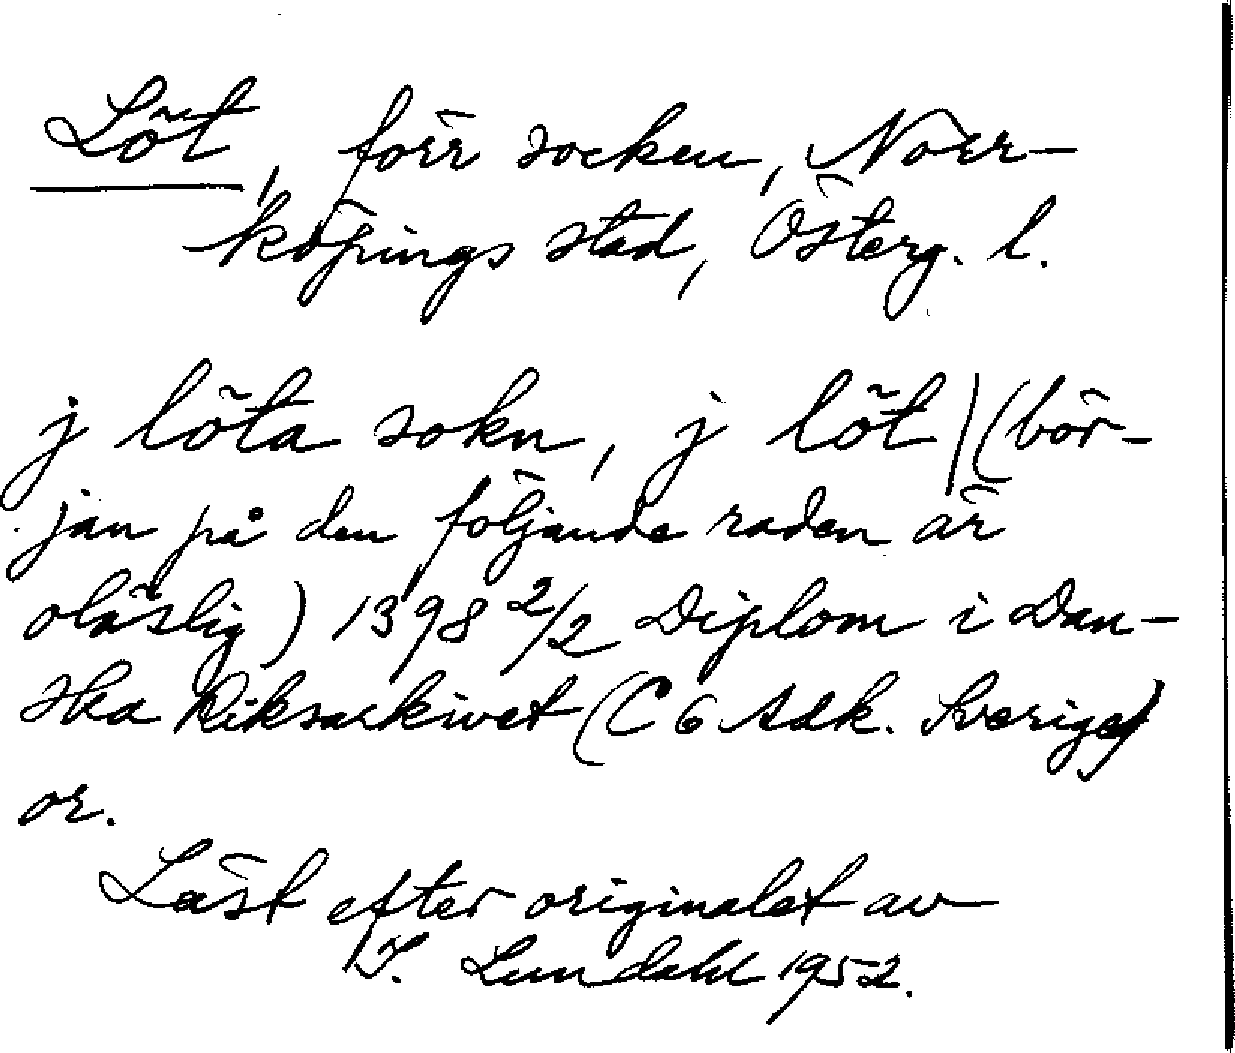 Löt, förr socken, Norr-
köpings stad, Österg. l.
j löta sokn, j löt | (bör-
jan på den följande raden är
oläslig) 1398 2/2 Diplom i Dan-
ska Riksarkivet (C 6 Adk. Sverige)
or.
Läst efter originalet av
I. Lundahl 1952.